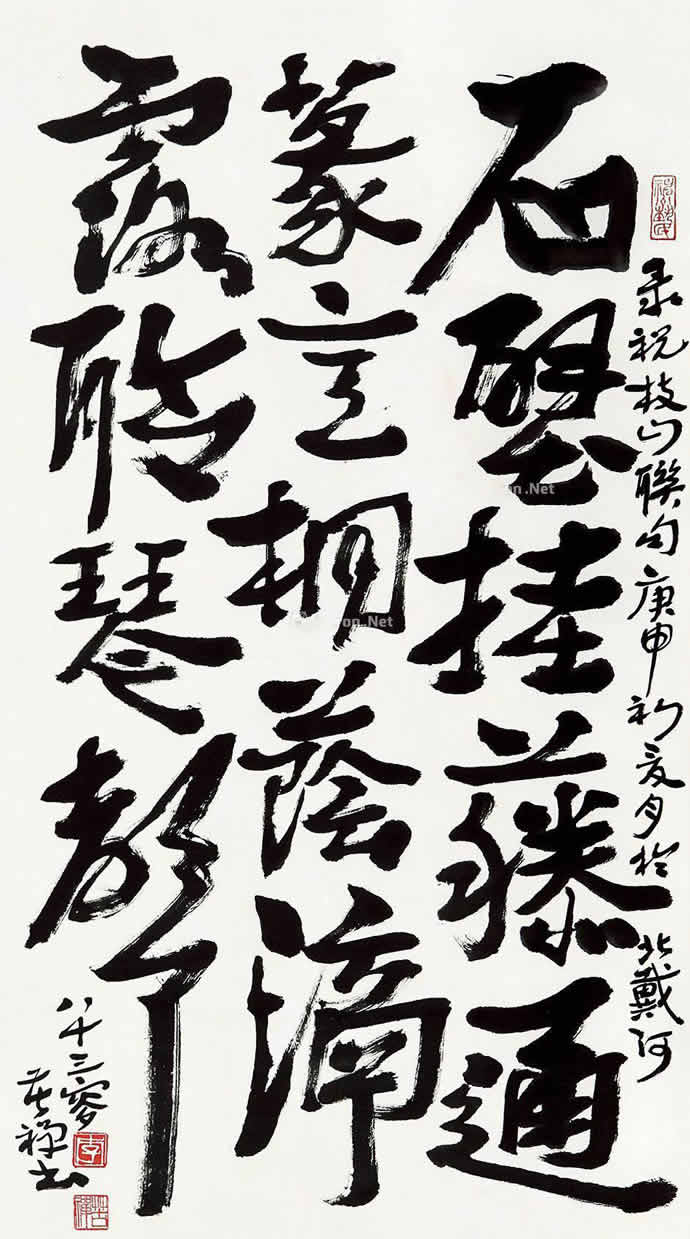 录祝枝山聯句庚申初夏月於北戴河
石壁挂藤通
篆意桐蔭滴
露聆琴聲
八十三叟
苦禅书
李